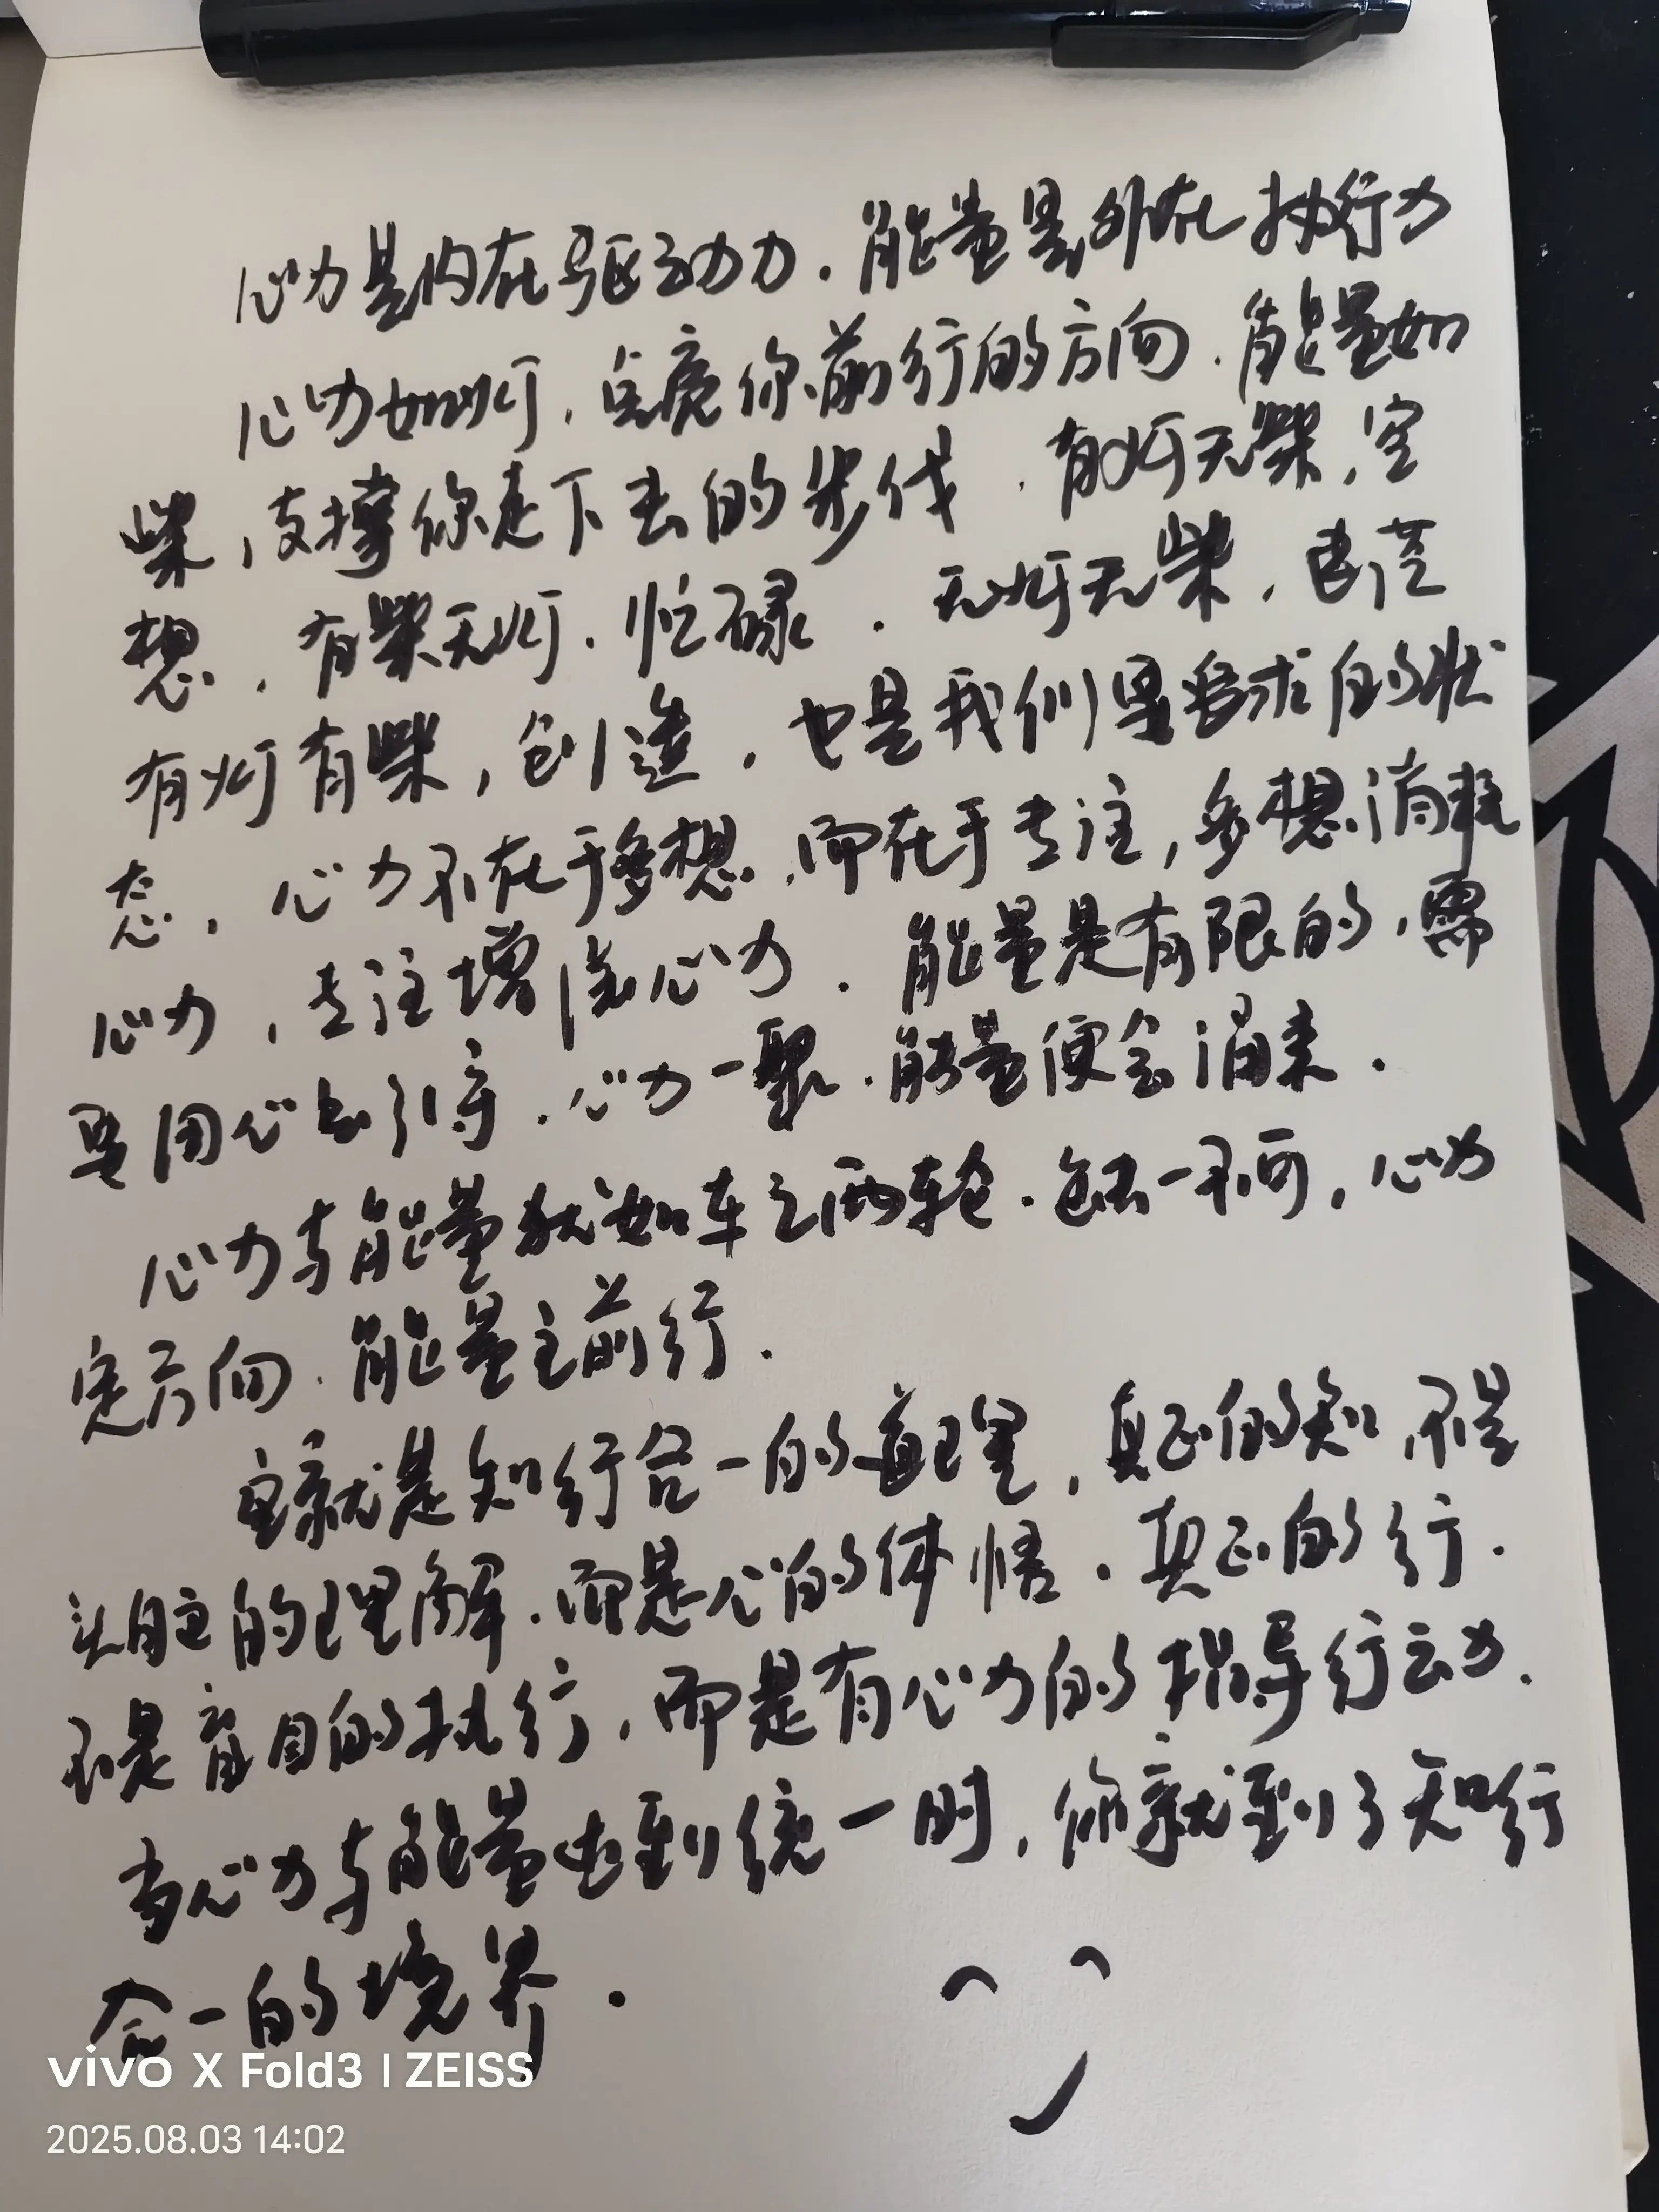 心力是内在驱动力.能量是外在执行力
心力如灯,点亮你前行的方向.能量如
柴,支撑你走下去的步伐.有灯无柴,空
想.有柴无灯.忙碌.无灯无柴,
有灯有柴,创造.也是我们要追求的状
态.心力不在于多想.而在于专注,多想消耗
心力,专注增强心力.能量是有限的.需
要用心去引导.心力一聚.能量便会涌来.
心力与能量就如车之两轮.缺一不可,心力
定方向.能量主前行.
这就是知行合一的真理,真正的知不是
头脑的理解.而是心的体悟.真正的行.
不是盲目的执行,而是有心力的指导行动力.
当心力与能量达到统一时,你就到了知行
合一的境界.
vivo X Fold3 | ZEISS
2025.08.03 14:02